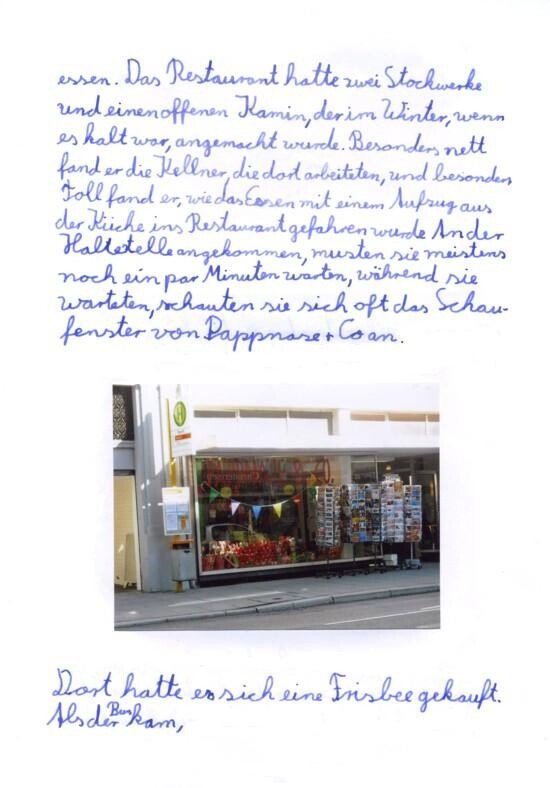 essen. Das Restaurant hatte zwei Stockwerke
und einen offenen Kamin, der im Winter, wenn
es kalt war, angemacht wurde. Besonders nett
fand er die Kellner, die dort arbeiteten, und besonders
Toll fand er, wie das Essen mit einem Aufzug aus
der Küche ins Restaurant gefahren wurde An der
Haltestelle angekommen, musten sie meistens
noch ein par Minuten warten, während sie
warteten, schauten sie sich oft das Schau-
fenster von Pappnase + Co an.
H
Dort hatte er sich eine Frisbee gekauft.
Als der Bus kam,